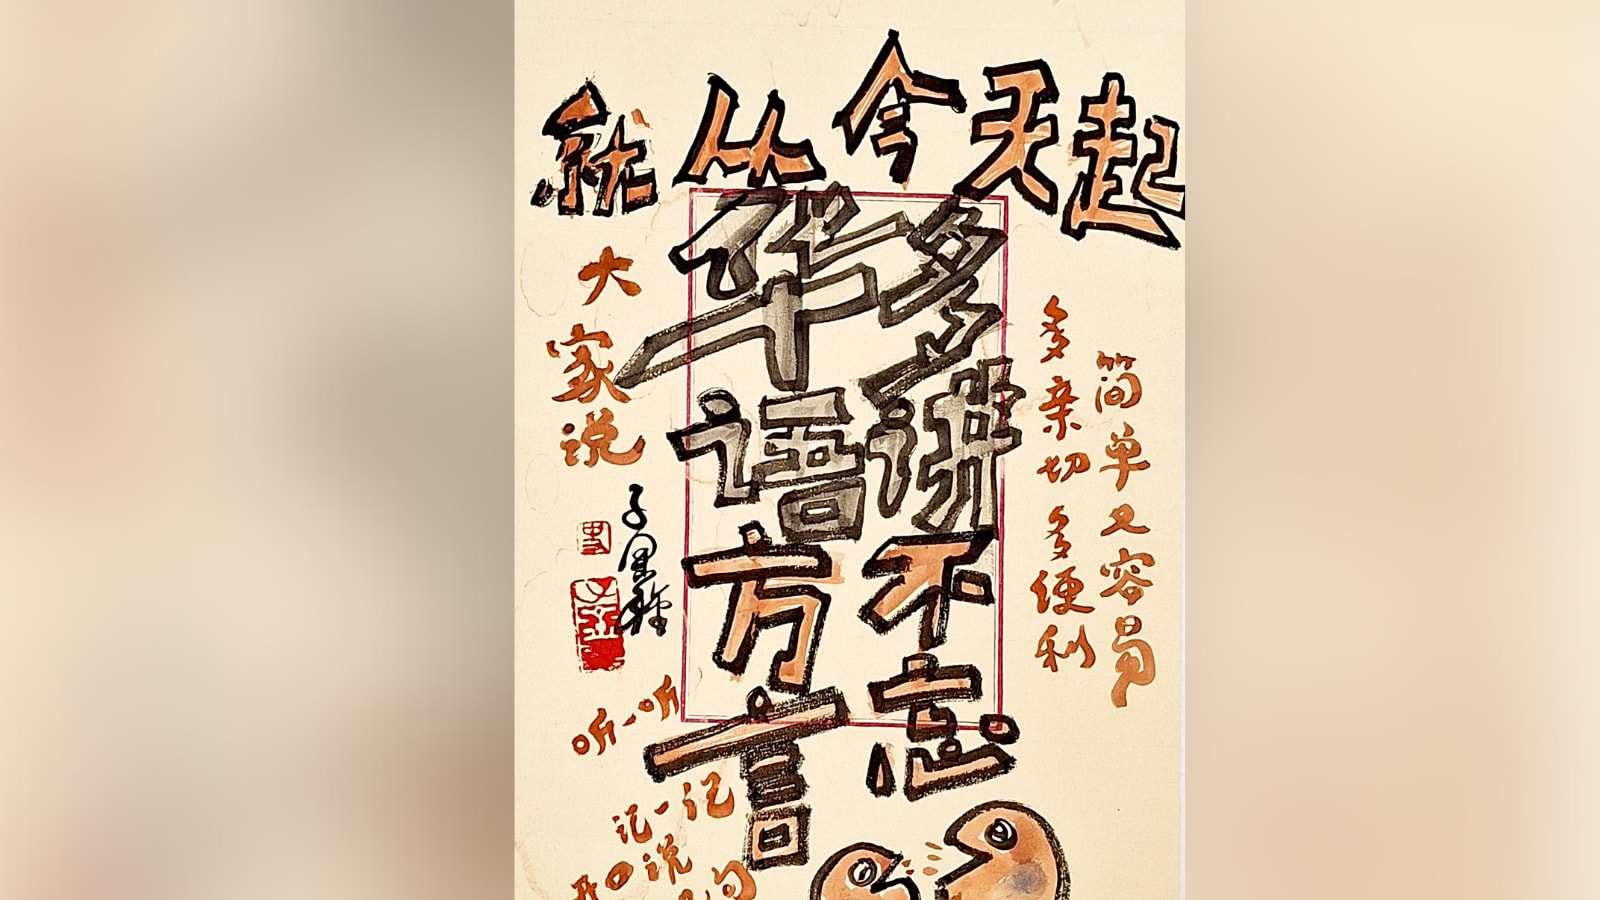 就从今天起
多讲不忘
华语方言
简单又容易
多亲切多便利
大家说
听一听
记一记
开口说
句